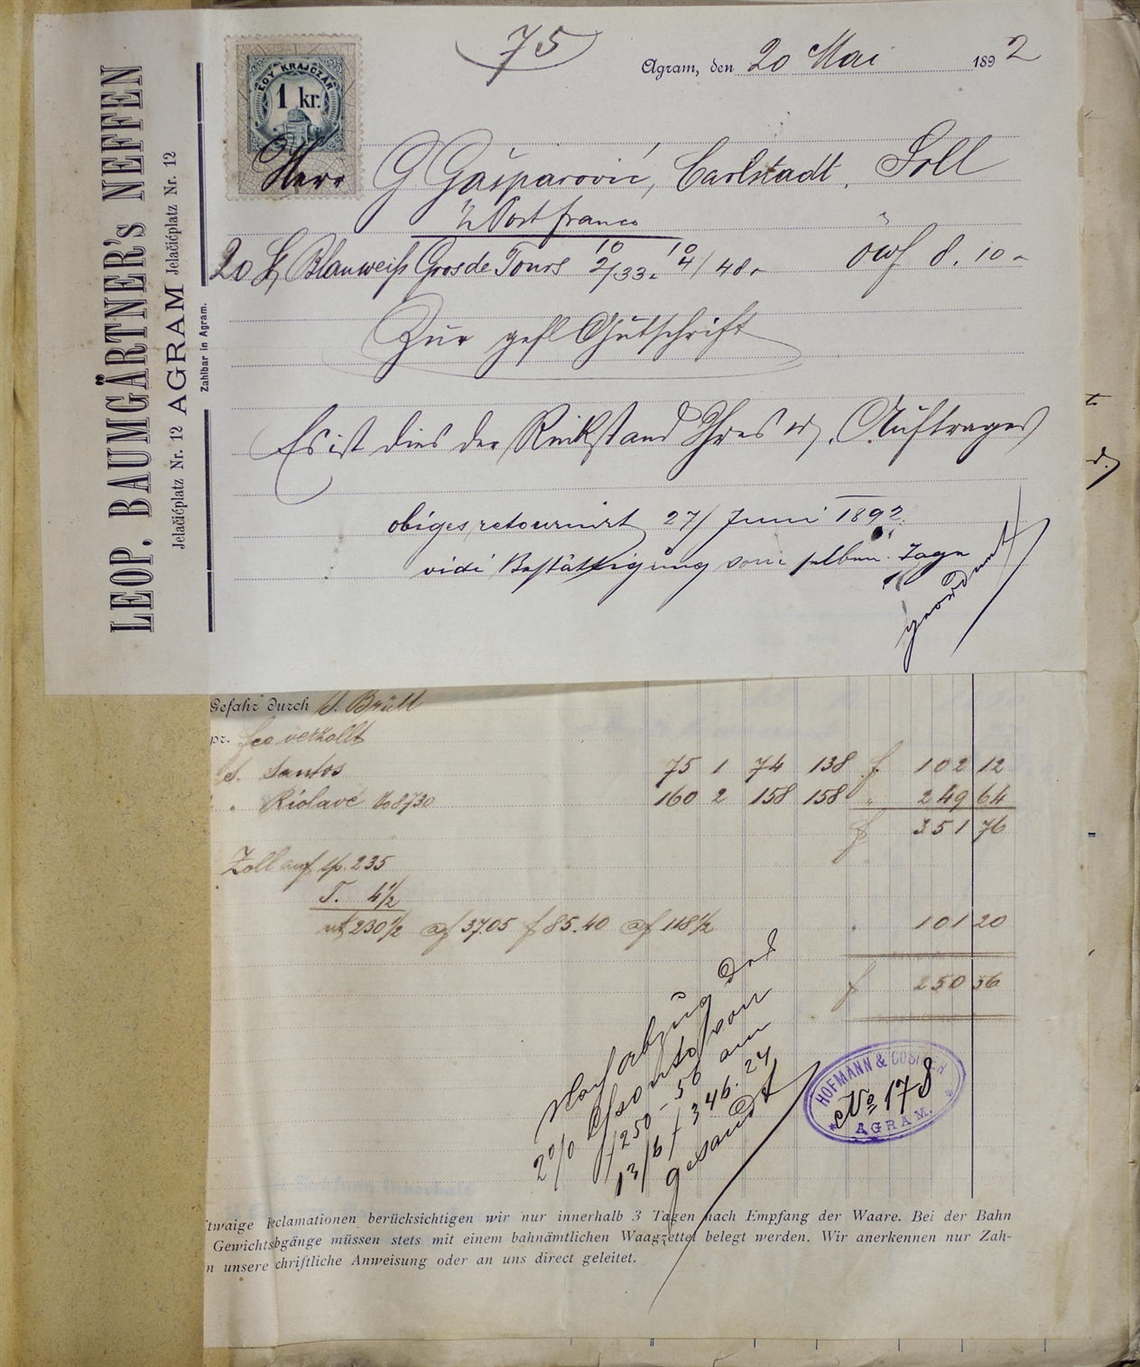 LEOP. BAUMGÄRTNER's NEFFEN
Jelačićplatz Nr. 12 AGRAM Jelačićplatz Nr. 12
Zahlbar in Agram.
75
Agram, den 20 Mai 1892
EGY KRAJCZÁR
1 kr.
Herr G Gašparović, Carlstadt. Soll
Post franco
20 Blauweiß Gros de Tours 10 2/33. 10 4/48.- öwf 8.10-
Zur gefl Gutschrift
Es ist dies der Rückstand Ihres w. Auftrages
obiges retournirt 27/ Juni 1892.
vidi Bestättigung vom selben Tage
Gefahr durch S. Brüll
pr. fco verzollt
S. Santos 75 1 74 138 f 102 12
" Riolavé No 8730 160 2 158 158 " 249 64
f 351 76
Zoll auf sp. 235
T. 4 1/2
230 1/2 af 37.05 f 85.40 af 118 1/2 " 101 20
f 250 56
Nach abzug des
2% Esconto von
f 250-56 am
13/6 f 346.24
gesandt
HOFMANN &
No 178
AGRAM.
twaige eclamationen berücksichtigen wir nur innerhalb 3 Tagen nach Empfang der Waare. Bei der Bahn
Gewichtsbgänge müssen stets mit einem bahnämtlichen Waagzettel belegt werden. Wir anerkennen nur Zah-
n unsere chriftliche Anweisung oder an uns direct geleitet.